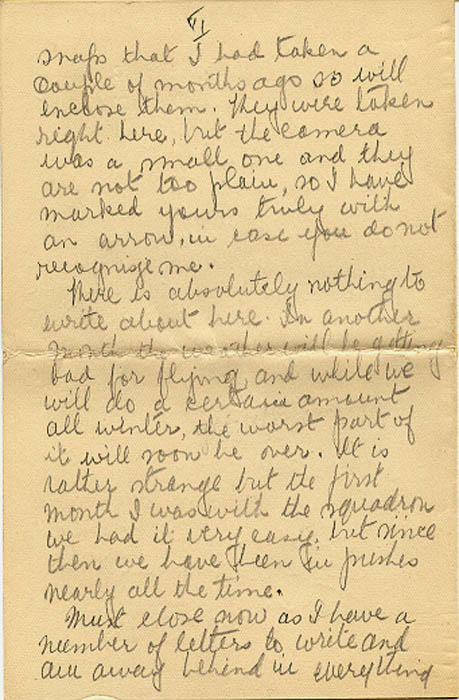 VI
snaps that I had taken a
couple of months ago so will
enclose them. They were taken
right here, but the camera
was a small one and they
are not too plain, so I have
marked yours truly with
an arrow, in case you do not
recognize me.
There is absolutely nothing to
write about here. In another
month the weather will be getting
bad for flying and while we
will do a certain amount
all winter, the worst part of
it will soon be over. It is
rather strange but the first
month I was with the squadron
we had it very easy, but since
then we have been in pushes
nearly all the time.
Must close now as I have a
number of letters to write and
am away behind in everything